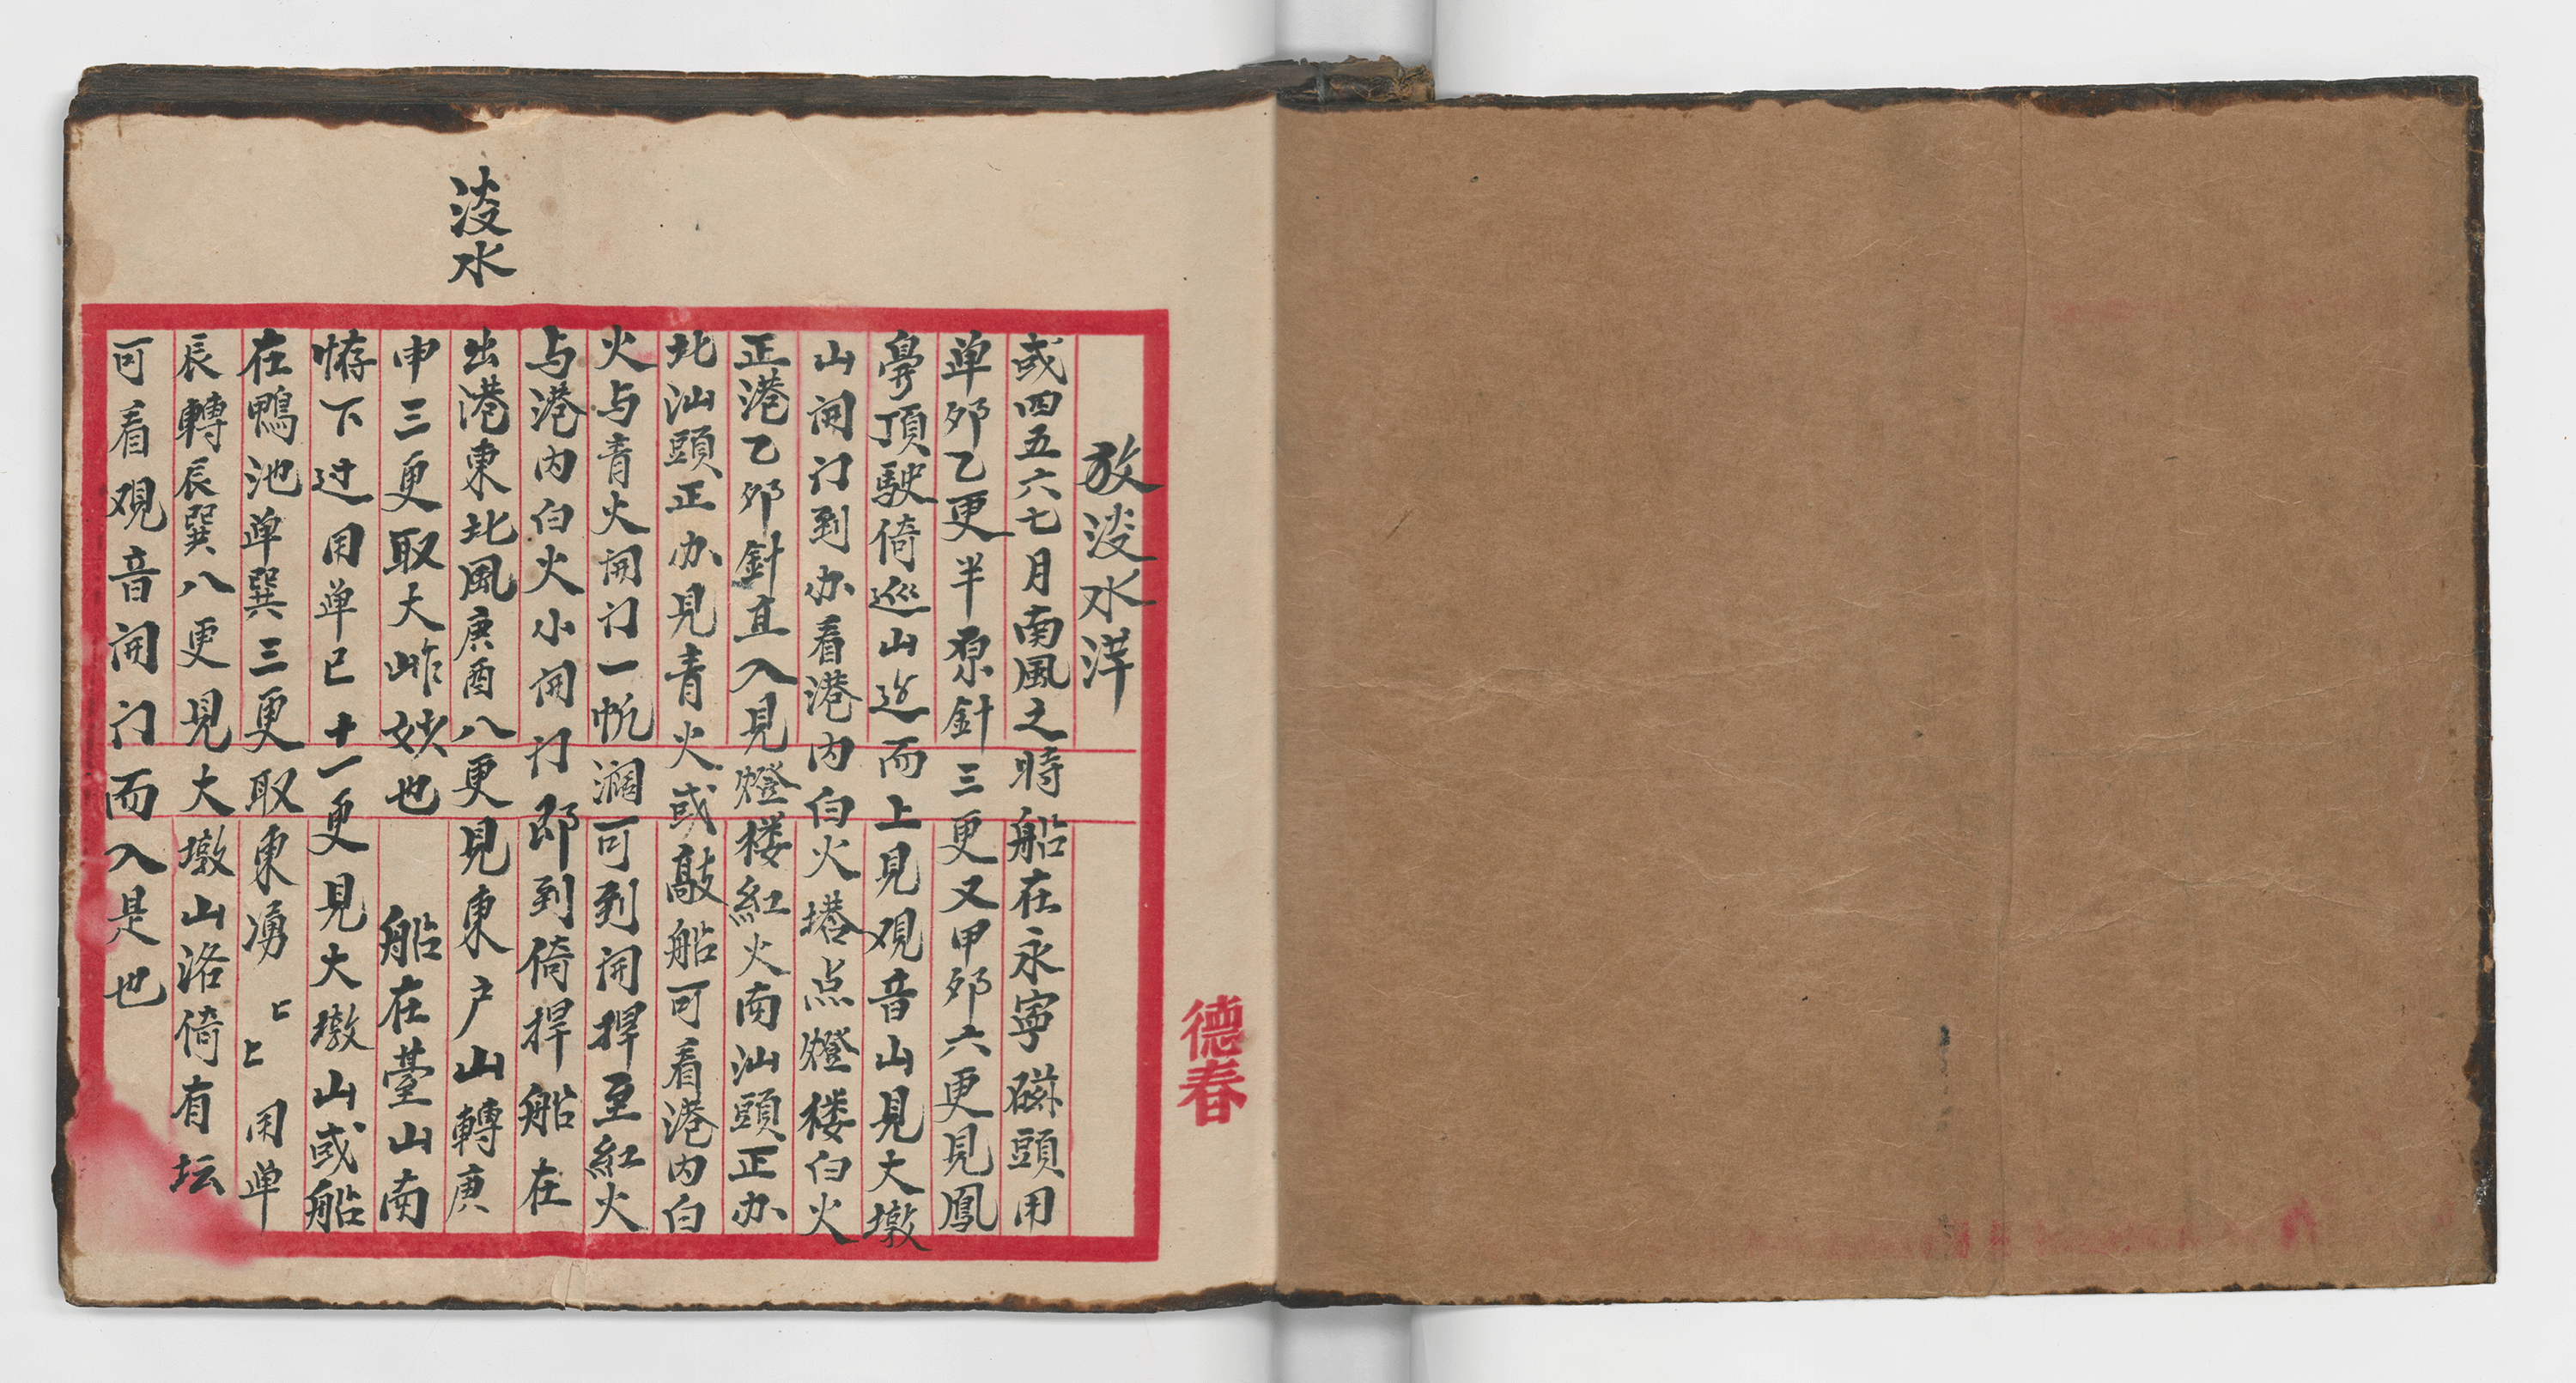 淡水
放淡水洋
或四五六七月南風之時船在永寧礠頭用
单夘乙更半原針三更又甲夘六更見鳳
鼻頂駛倚巡山迯而上見观音山見大墩
山開门到办看港内白火塔点燈楼白火
正港乙夘針直入見燈楼紅火南汕頭正办
北汕頭正办見青火或敲船可看港内白
火与青火開门一帆濶可到開捍至紅火
与港内白火小開门即到倚捍船在
出港東北風庚酉八更見東户山轉庚
申三更取大岞妭也 船在臺山南
㤓下过用单巳十一更見大墩山或船
在鴨池单巽三更取東湧 用单
辰轉辰巽八更見大墩山洛倚有坛
可看观音開门而入是也
德春